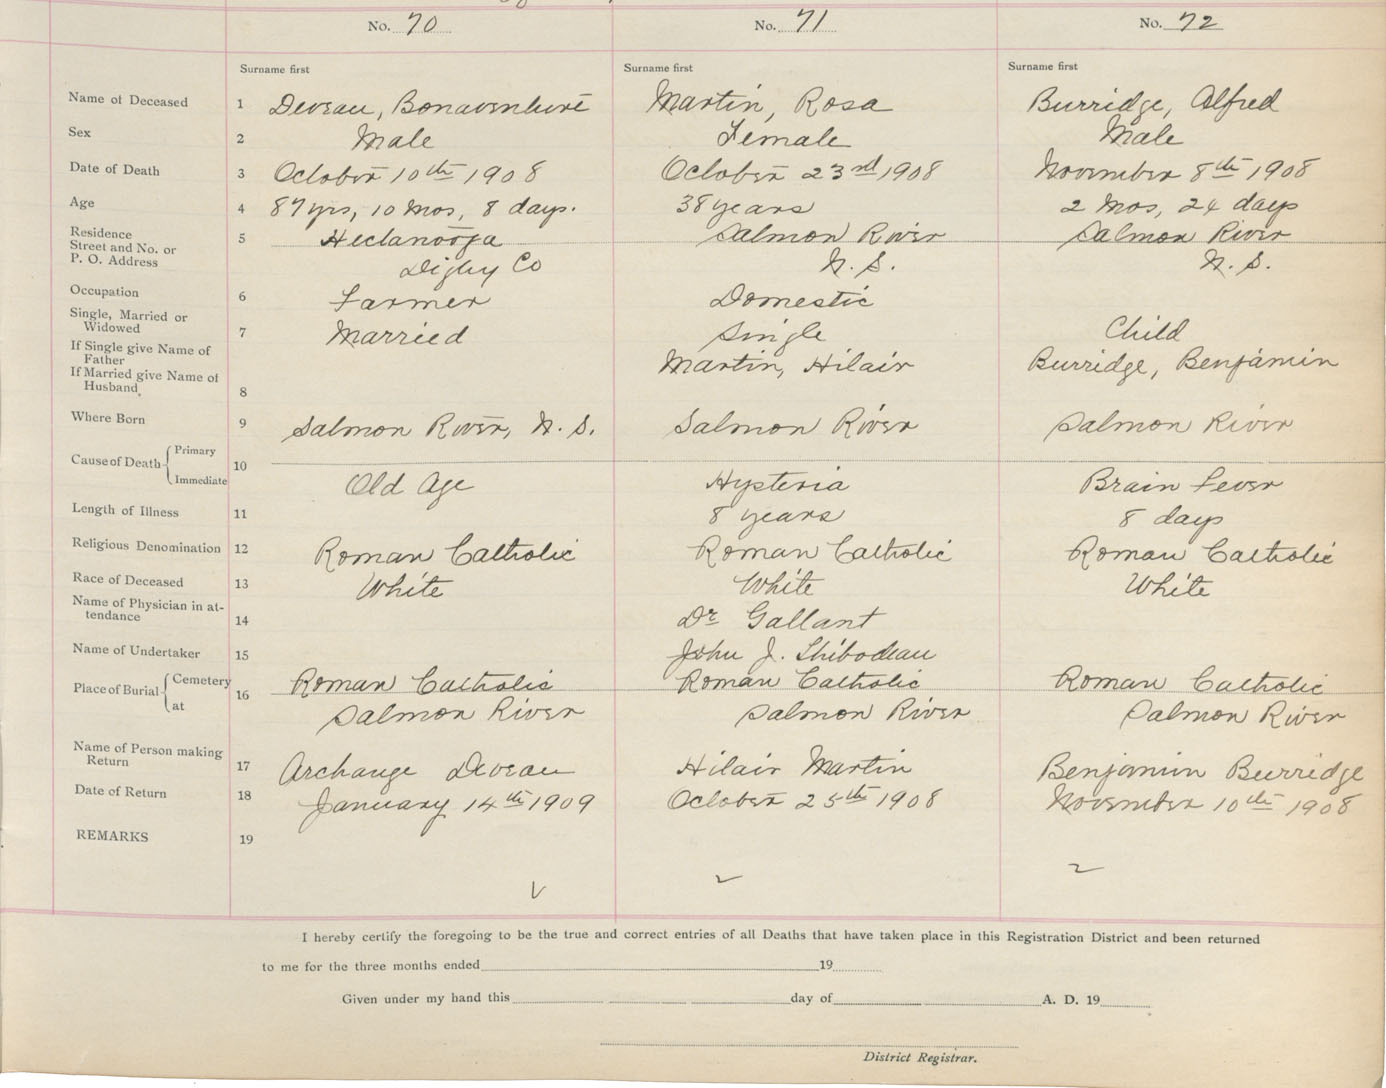 No. 70 No. 71 No. 72
Surname first Surname first Surname first
Name of Deceased 1 Deveau, Bonaventure Martin, Rosa Burridge, Alfred
Sex 2 Male Female Male
Date of Death 3 October 10th 1908 October 23rd 1908 November 8th 1908
Age 4 87 yrs, 10 Mos, 8 days. 38 years 2 Mos, 24 days
Residence
Street and No. or 5 Hectanooga Salmon River Salmon River
P. O. Address Digby Co N. S. N. S.
Occupation 6 Farmer Domestic
Single, Married or
Widowed 7 Married Single Child
If Single give Name of
Father Martin, Hilair Burridge, Benjamin
If Married give Name of
Husband 8
Where Born 9 Salmon River, N. S. Salmon River Salmon River
Cause of Death Primary
10
Immediate Old Age Hysteria Brain Fever
Length of Illness 11 8 years 8 days
Religious Denomination 12 Roman Catholic Roman Catholic Roman Catholic
Race of Deceased 13 White White White
Name of Physician in at-
tendance 14 Dr Gallant
Name of Undertaker 15 John J. Thibodeau
Place of Burial Cemetery 16 Roman Catholic Roman Catholic Roman Catholic
at Salmon River Salmon River Salmon River
Name of Person making
Return 17 Archange Deveau Hilair Martin Benjamin Burridge
Date of Return 18 January 14th 1909 October 25th 1908 November 10th 1908
REMARKS 19
I hereby certify the foregoing to be the true and correct entries of all Deaths that have taken place in this Registration District and been returned
to me for the three months ended 19
Given under my hand this day of A. D. 19
District Registrar.